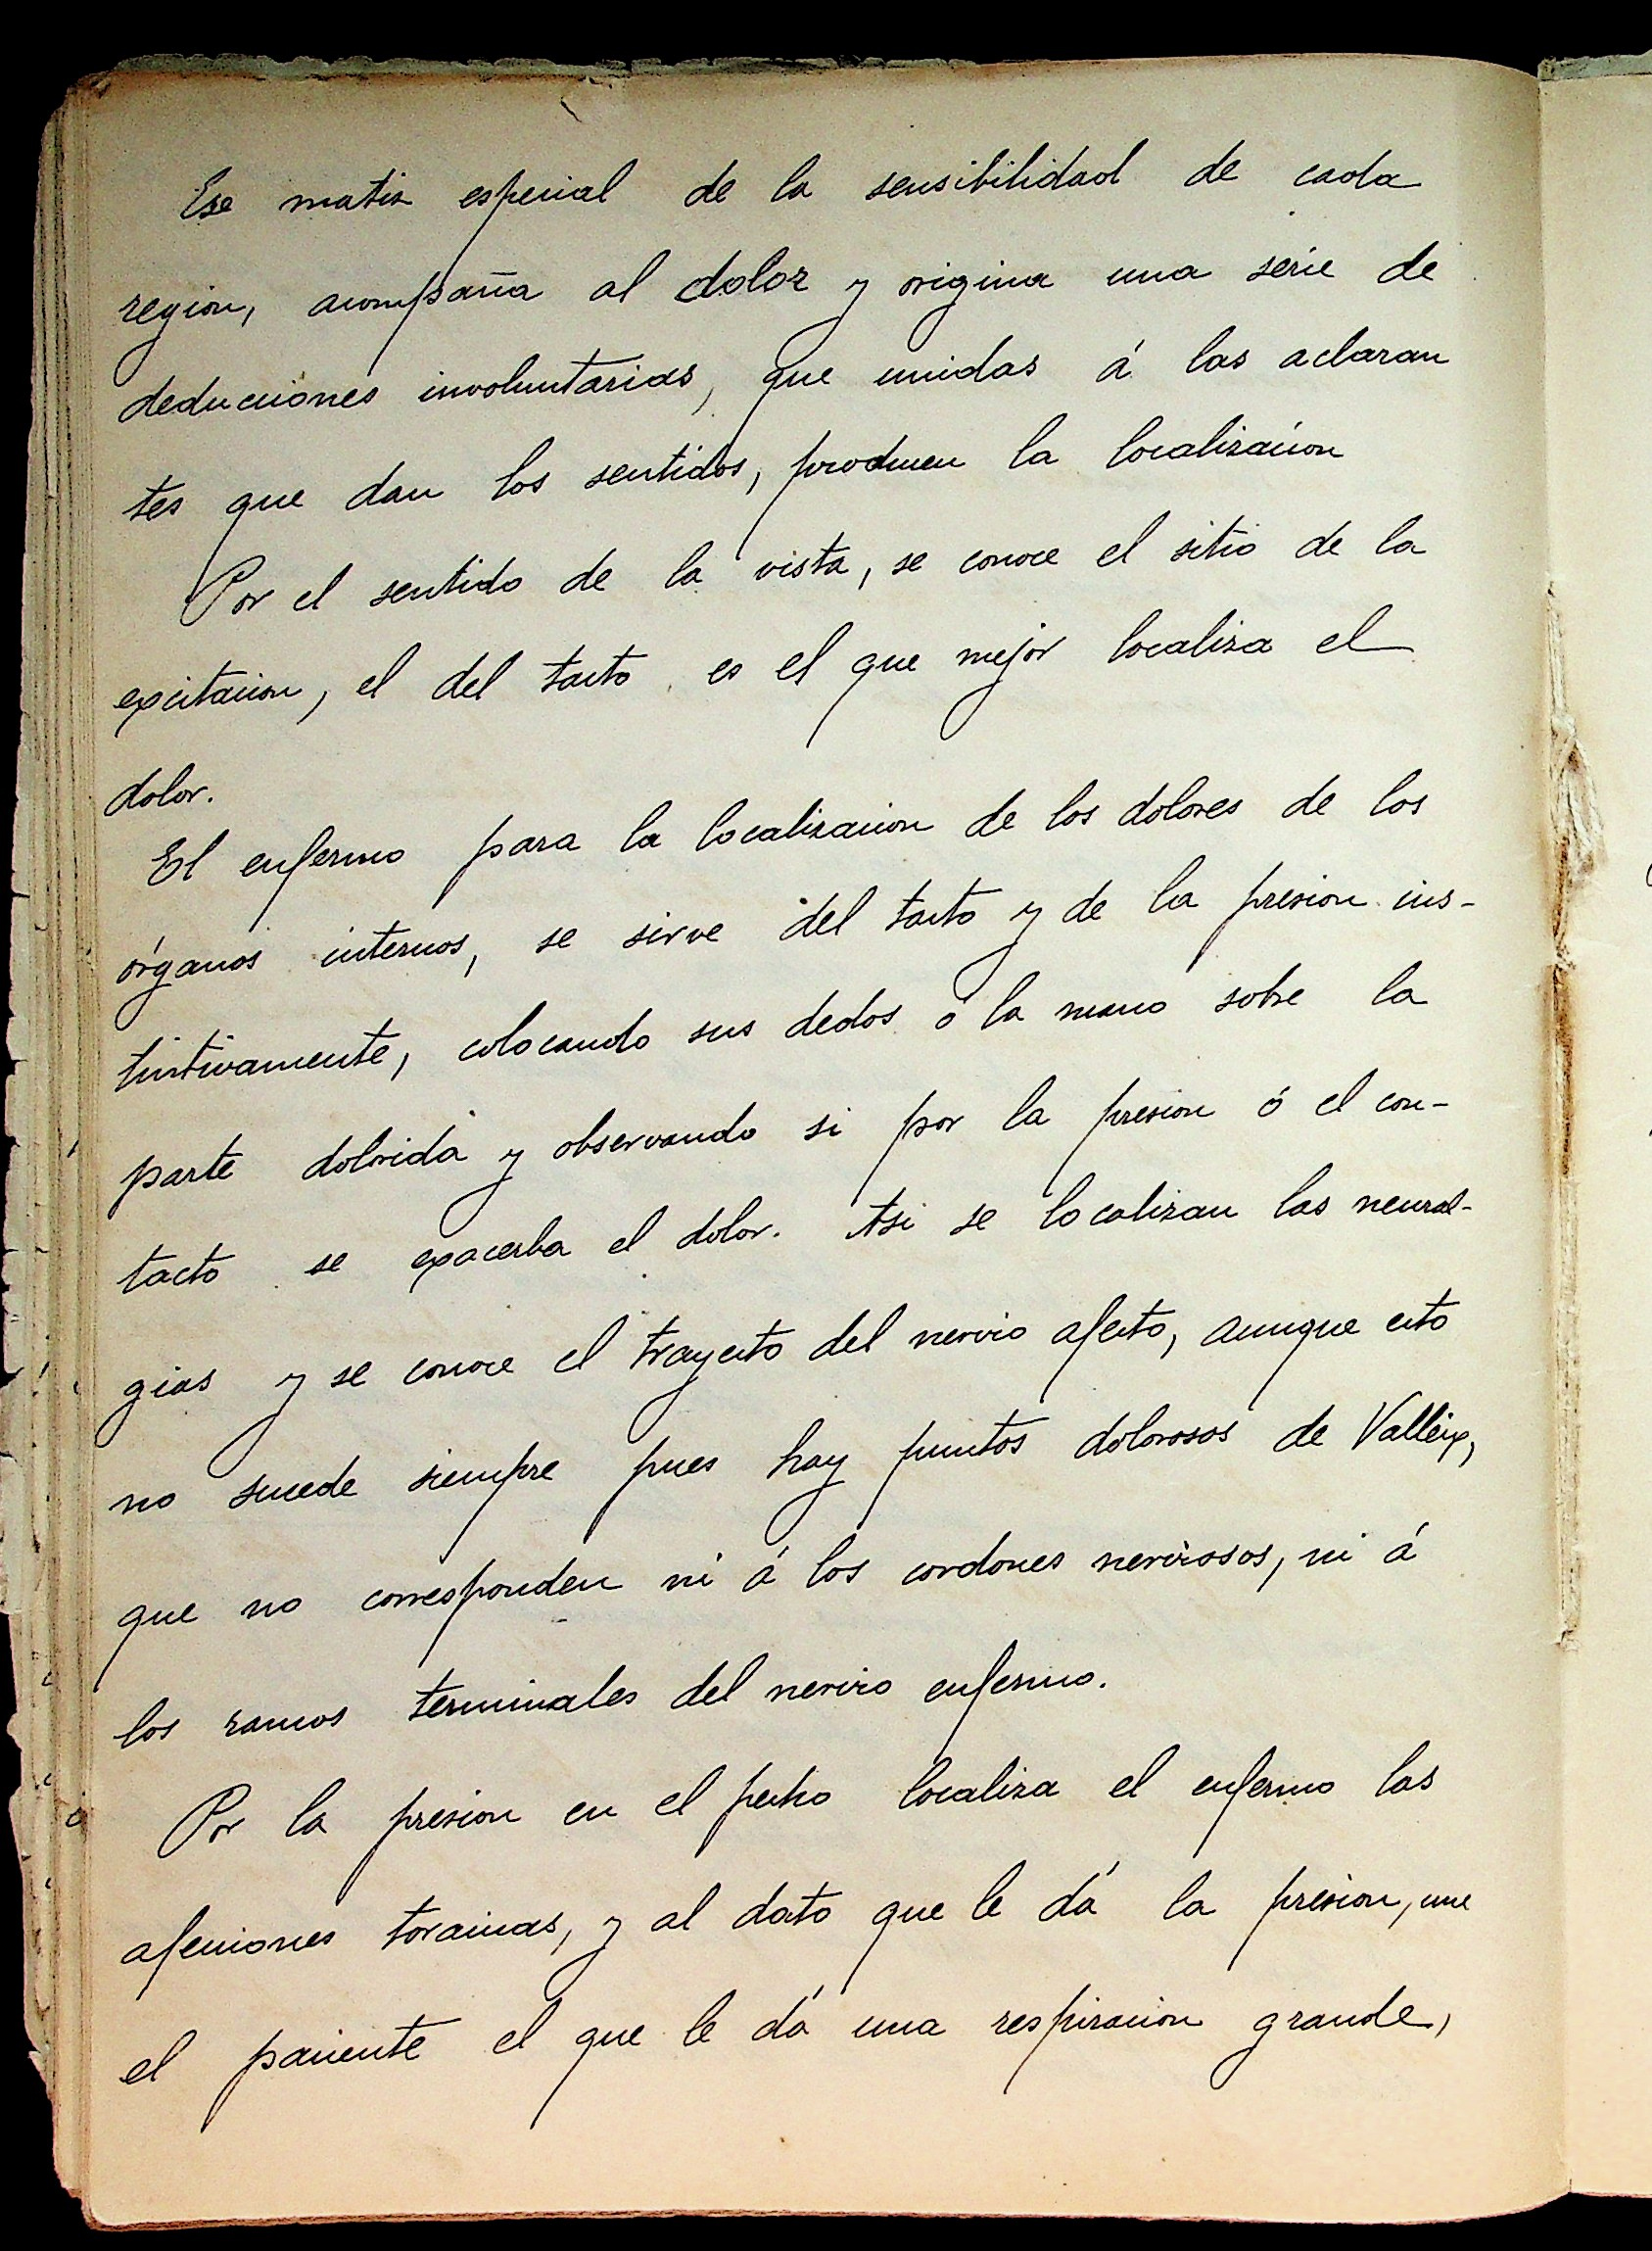 Ese matiz especial de la sensibilidad de cada
region, acompaña al dolor y origina una serie de
deducciones involuntarias, que unidas á las aclaran
tes que dan los sentidos, producen la localizacion
Por el sentido de la vista, se conoce el sitio de la
excitacion, el del tacto es el que mejor localiza el
dolor.
El enfermo para la localizacion de los dolores de los
órganos internos, se sirve del tacto y de la presion ins-
tintivamente, colocando sus dedos ó la mano sobre la
parte dolorida y observando si por la presion ó el con-
tacto se exacerba el dolor. Asi se localizan las neural-
gias y se conoce el trayecto del nervio afecto, aunque esto
no sucede siempre pues hay puntos dolorosos de Valleix,
que no corresponden ni á los cordones nerviosos, ni á
los ramos terminales del nervio enfermo.
Por la presion en el pecho localiza el enfermo las
afecciones toracicas, y al dato que le dá la presion, une
el paciente el que le dá una respiracion grande,